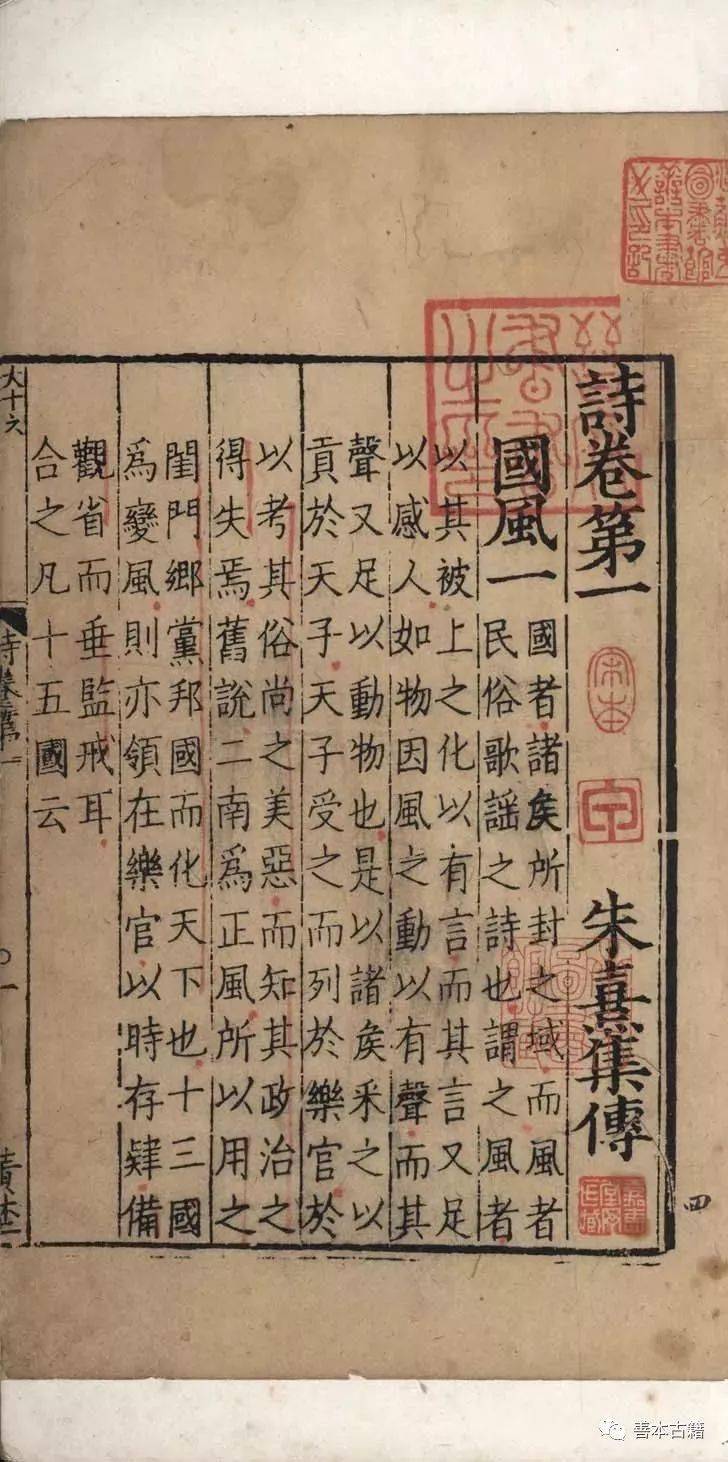 詩卷第一
朱熹集傳
國風一
國者諸矦所封之域而風者
民俗歌謡之詩也謂之風者
以其被上之化以有言而其言又足
以感人如物因風之動以有聲而其
聲又足以動物也是以諸矦采之以
貢於天子天子受之而列於樂官於
以考其俗尚之美惡而知其政治之
得失焉舊說二南爲正風所以用之
閨門鄉黨邦國而化天下也十三國
爲變風則亦領在樂官以時存肄備
觀省而垂監戒耳
合之凡十五國云
大十六
詩卷第一
四
宋本
善本古籍